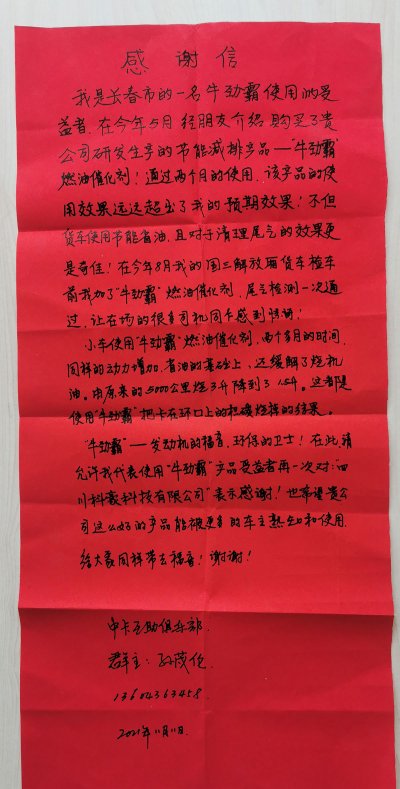 感谢信
我是长春市的一名牛劲霸使用的受
益者,在今年5月经朋友介绍购买了贵
公司研发生产的节能减排产品—"牛劲霸"
燃油催化剂!通过两个月的使用,该产品的使
用效果远远超出了我的预期效果!不但
货车使用节能省油,且对于清理尾气的效果更
是奇佳!在今年8月我的国三解放厢货车检车
前我加了"牛劲霸"燃油催化剂,尾气检测一次通
过,让在场的很多司机同行感到惊讶!
小车使用"牛劲霸"燃油催化剂,两个多月的时间,
同样的动力增加,省油的基础上,还缓解了烧机
油。由原来的5000公里烧3升降到了1.5升。这都是
使用"牛劲霸"把卡在环口上的积碳烧掉的结果。
"牛劲霸"—发动机的福音,环保的卫士!在此请
允许我代表使用"牛劲霸"产品受益者再一次对:"四
川科 科技有限公司"表示感谢!也希望贵公
司这么好的产品能被更多的车主熟知和使用,
给大家同样带去福音!谢谢!
中卡互助俱乐部.
群主:孙茂伦
13604363458.
2021年11月11日.